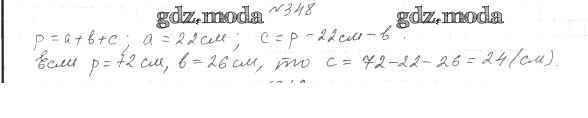 №348
gdz.moda gdz.moda
p=a+b+c; a=22см; c=p-22см-b.
Если p=72см, b=26см, то c=72-22-26=24(см).